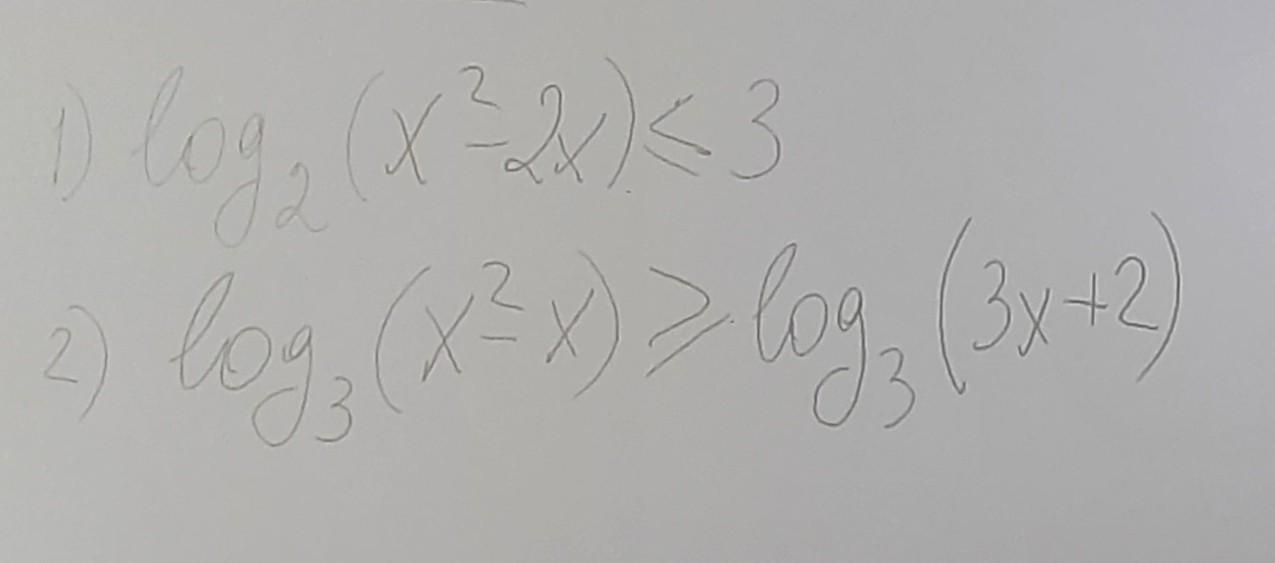 1) log₂(x²-2x)≤3
2) log₃(x²-x)≥log₃(3x+2)